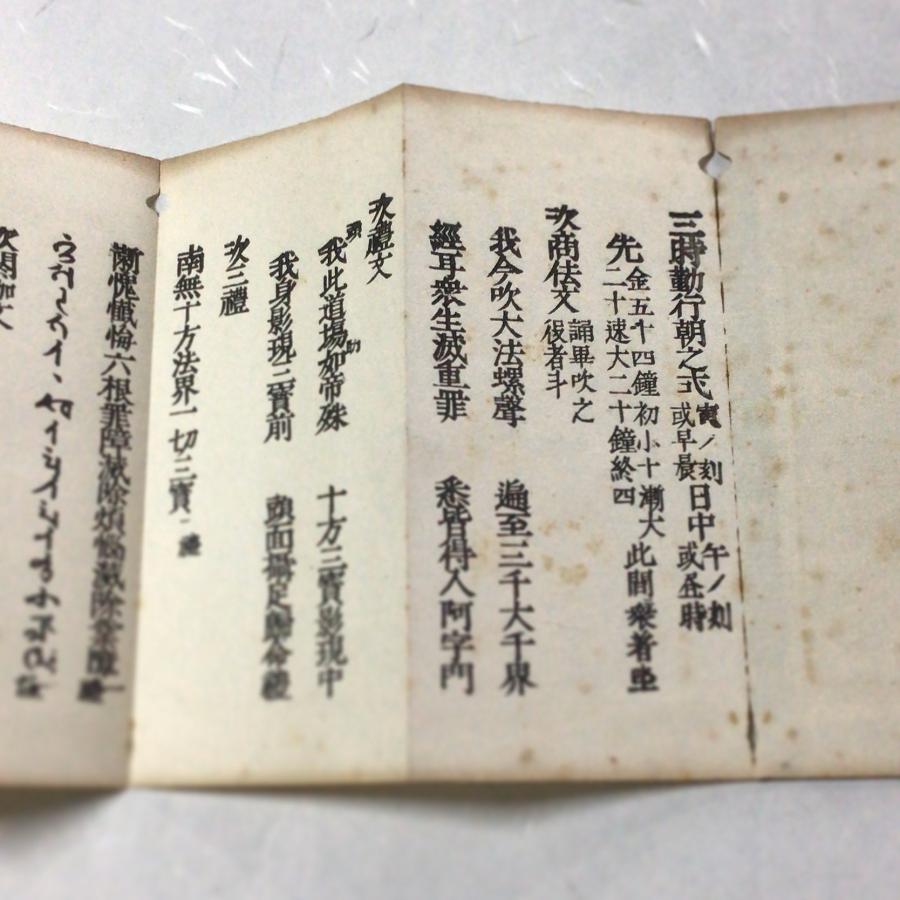 三時勤行朝之式 寅ノ刻 或早晨 日中 午ノ刻 或昼時
先 金五十四鐘初小十漸大此間衆着坐
二十速大二十鐘終四
次商佉文 誦畢吹之
役者斗
我今吹大法螺聲 遍至三千大千界
經耳衆生滅重罪 悉皆得入阿字門
次禮文
我此道場如帝殊 十方三寳影現中
我身影現三寳前 頭面攝足歸命禮
次三禮
南無十方法界一切三寳 一禮
慚愧懺悔六根罪障滅除煩惱滅除業障 一禮
次閼伽文